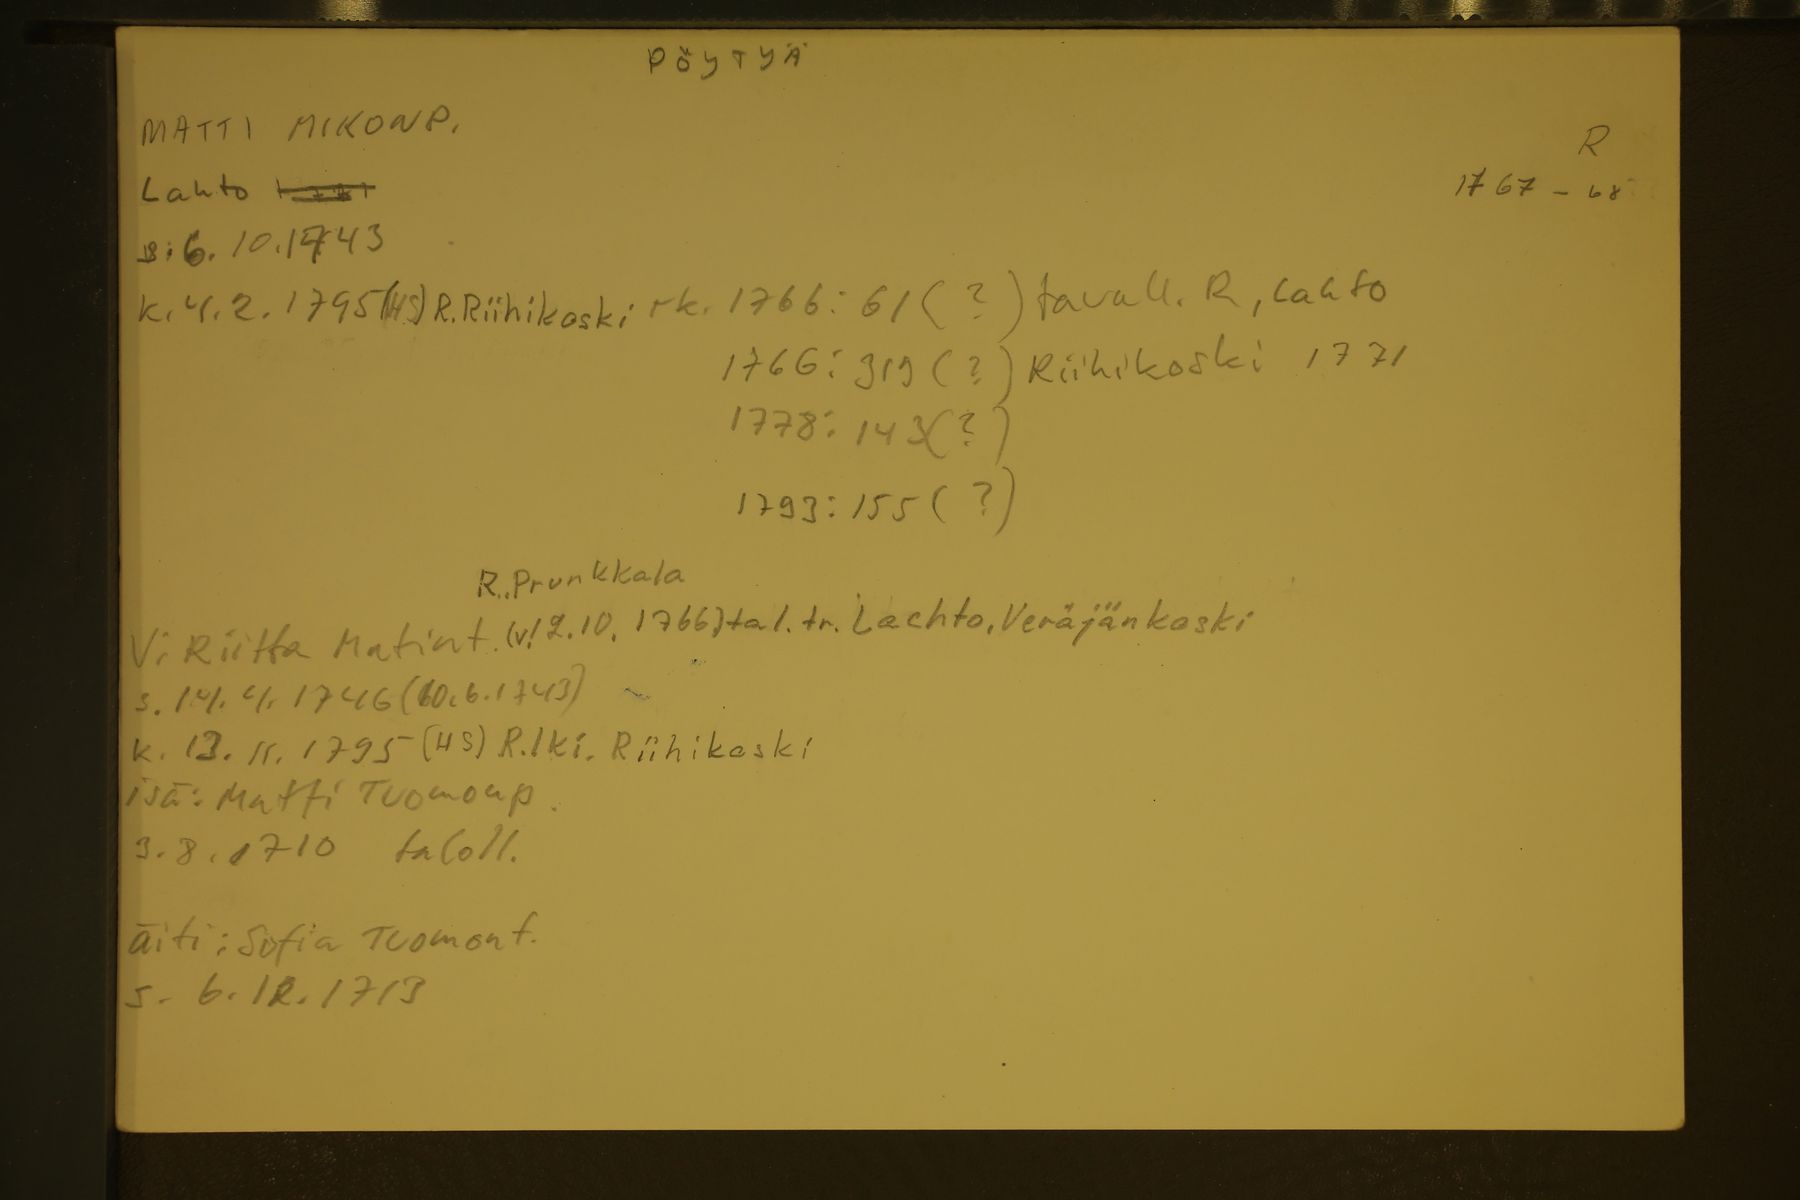 PÖYTYÄ
MATTI MIKONP.
R
Lahto
1767 - 68
s. 6. 10. 1743
k. 4. 2. 1795 (HS) R. Riihikoski rk. 1766: 61 (?) tavall. R, Lahto
1766: 319 (?) Riihikoski 1771
1778: 143 (?)
1793: 155 (?)
R. Prunkkala
V: Riitta Matint. (v. 12. 10. 1766) tal. tr. Lachto, Veräjänkoski
s. 14. 4. 1746 (10. 6. 1743)
k. 13. 11. 1795 (HS) R. lki. Riihikoski
isä: Matti Tuomonp.
s. 8. 1710 taloll.
äiti: Sofia Tuomont.
s. 6. 12. 1713